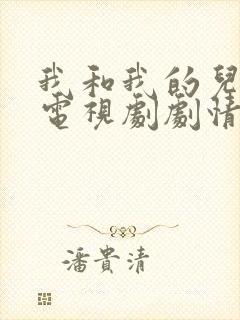 我和我的兒
電視劇劇情
潘貴清